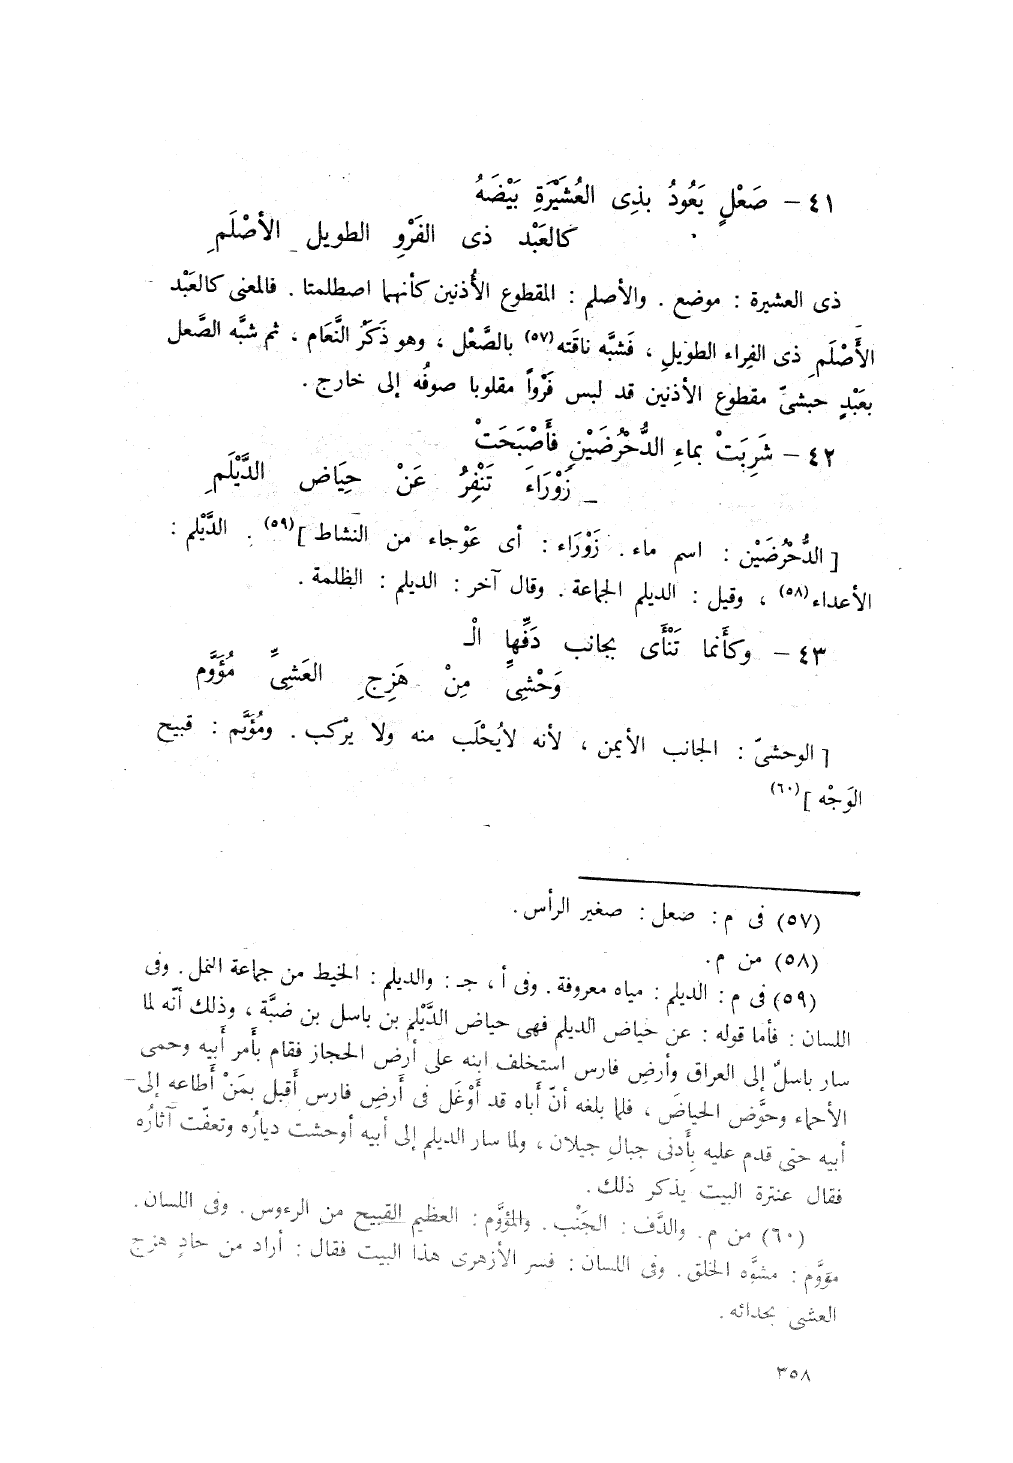 ٤١ – صَعْلٍ يَعُودُ بذِى العُشَيْرَةِ بَيْضَهُ
كالعَبْد ذى الفَرْوِ الطويل الأصْلَمِ
ذى العشيرة : موضع . والأصلم : المقطوع الأُذنين كأنهما اصطلمتا . فالمعنى كالعَبْد
الأَصْلَمِ ذى الفِراء الطويلِ ، فَشبَّه ناقَته (٥٧) بالصَّعْل ، وهو ذَكَرُ النَّعَام ، ثم شبَّه الصَّعل
بعَبْدٍ حبشىّ مقطوع الأذنين قد لبس فَرْواً مقلوبا صوفُه إلى خارج .
٤٢ – شَرِبَتْ بماءِ الدُّحْرُضَيْنِ فأَصْبَحَتْ
زَوْرَاءَ تَنْفِرُ عَنْ حِيَاض الدَّيْلَمِ
[ الدُّحْرُضَيْن : اسم ماء . زَوْرَاء : أى عَوْجاء من النشاط ] (٥٩) . الدَّيْلم :
الأعداء (٥٨) ، وقيل : الديلم الجماعة . وقال آخر : الديلم : الظلمة .
٤٣ – وكأَنما تَنْأَى بجانب دَفِّها الْـ
وَحْشِىِّ مِنْ هَزِجِ العَشىِّ مُؤَوَّم
[ الوحشىّ : الجانب الأيمن ، لأنه لايُحْلَب منه ولا يرْكب . ومُؤَيَّم : قبيح
الوَجْه ] (٦٠)
(٥٧) فى م : صعل : صغير الرأس .
(٥٨) من م .
(٥٩) فى م : الديلم : مياه معروفة . وفى أ ، جـ : والديلم : الخيط من جماعة النمل . وفى
اللسان : فأما قوله : عن حياض الديلم فهى حياض الدَّيْلم بن باسل بن ضبَّة ، وذلك أنّه لما
سار باسلٌ إلى العراق وأرضِ فارس استخلف ابنه على أرض الحجاز فقام بأَمر أَبيه وحمى
الأحماء وحوَّض الحياضَ ، فلما بلغه أنّ أَباه قد أَوْغَل فى أَرضِ فارس أَقبل بمَنْ أَطاعه إلى–
أبيه حتى قدم عليه بِأَدنى جبالِ جيلان ، ولما سار الديلم إلى أبيه أوحشت ديارُه وتعفّت آثارُه
فقال عنترة البيت يذكر ذلك .
(٦٠) من م . والدَّف : الجَنْب . والمؤوَّم : العظيم القبيح من الرءوس . وفى اللسان .
مؤوَّم : مشوَّه الخلق . وفى اللسان : فسر الأزهرى هذا البيت فقال : أراد من حادٍ هزج
العشى بحدائه .
٣٥٨